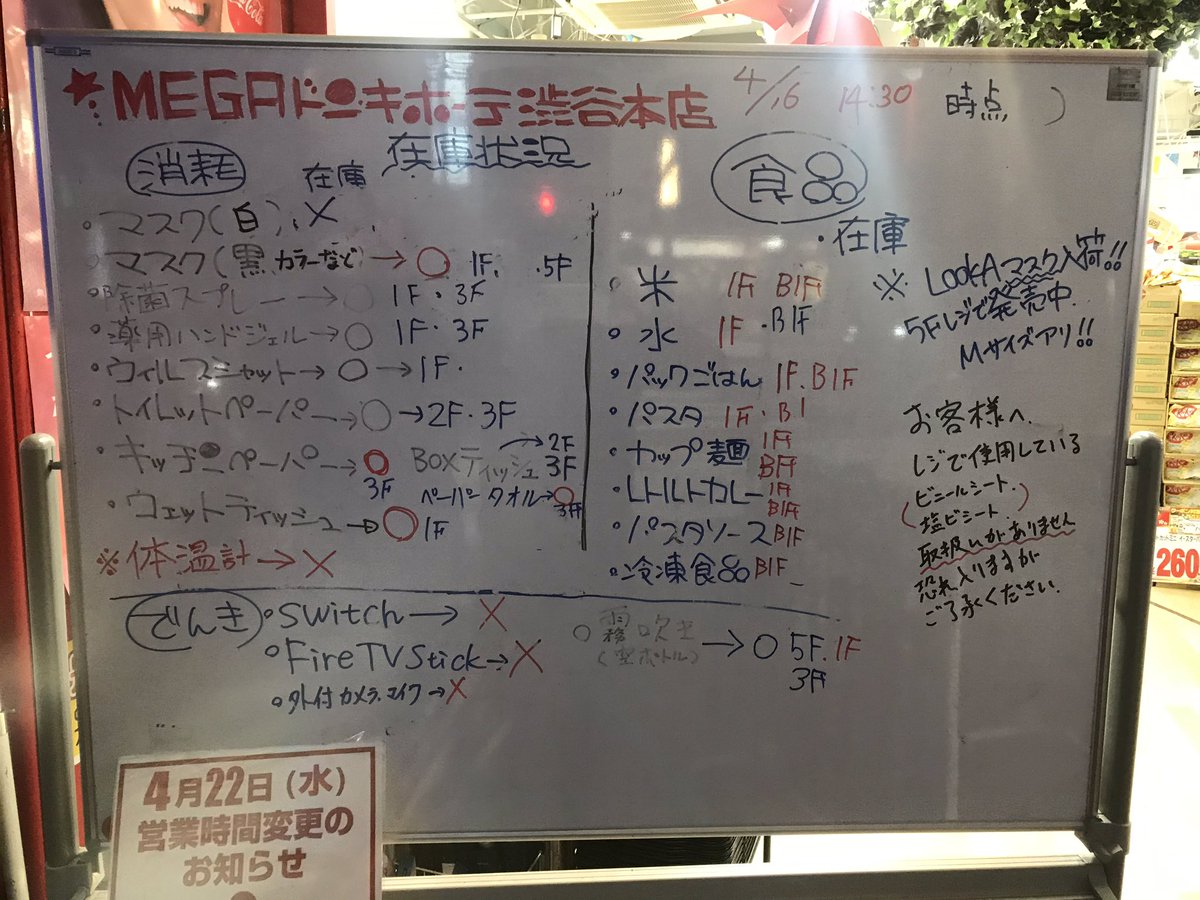 ★MEGAドンキホーテ渋谷本店 4/16 14:30 時点 )
在庫状況
消耗 在庫
・マスク(白) × 
・マスク(黒 カラーなど)→○ 1F. .5F
・除菌スプレー→○ 1F・3F
・薬用ハンドジェル→○ 1F・3F
・ウィルスシャット→○→1F.
・トイレットペーパー→○→2F・3F
・キッチンペーパー→○ 3F
BOXティッシュ 2F 3F
ペーパータオル→○ 3F
・ウェットティッシュ→○ 1F
※体温計→×
食品
・在庫
・米 1F B1F
・水 1F .B1F
・パックごはん 1F.B1F
・パスタ 1F・B1
・カップ麺 1F B1F
・レトルトカレー 1F B1F
・パスタソース B1F
・冷凍食品 B1F
※ LookAマスク入荷!!
5Fレジで発売中
Mサイズアリ!!
お客様へ
レジで使用している
(ビニールシート.
塩ビシート)
取扱いがありません
恐れ入りますが
ご了承ください.
でんき
・Switch→×
・Fire TV Stick→×
・外付カメラ.マイク→×
○霧吹き
(空ボトル)
→○ 5F.1F
3F
4月22日(水)
営業時間変更の
お知らせ
260